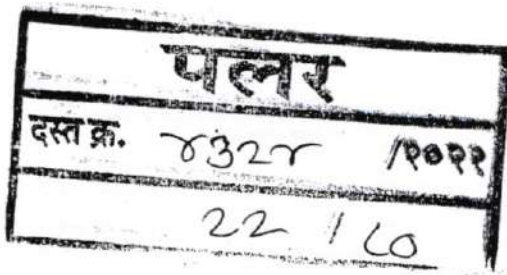 पलर
दस्त क्र. ४३२४ /२०२२
२२ / ८०